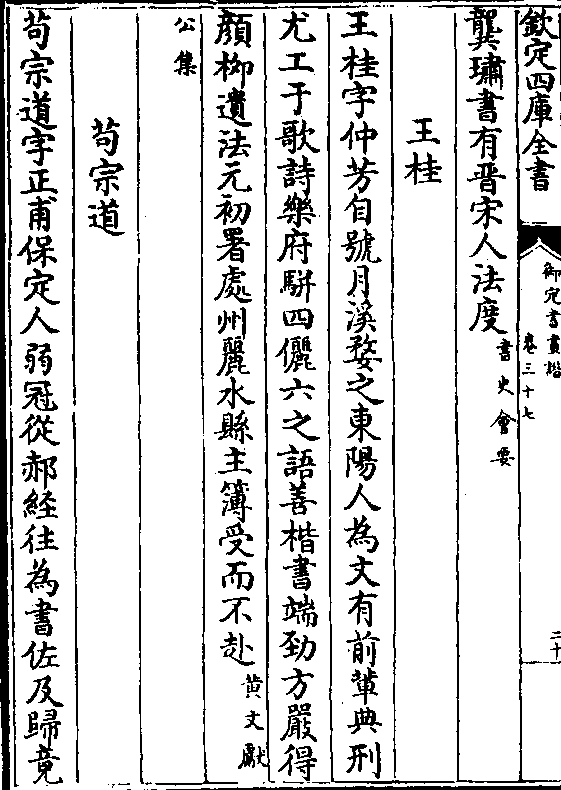 欽定四庫全書
御定書畫譜
卷三十七
二十
龔璛書有晉宋人法度書史會要
王桂
王桂字仲芳自號月溪婺之東陽人為文有前輩典刑
尤工于歌詩樂府駢四儷六之語善楷書端勁方嚴得
顔栁遺法元初署處州麗水縣主簿受而不赴黄文獻
公集
茍宗道
茍宗道字正甫保定人弱冠從郝經往為書佐及歸竟